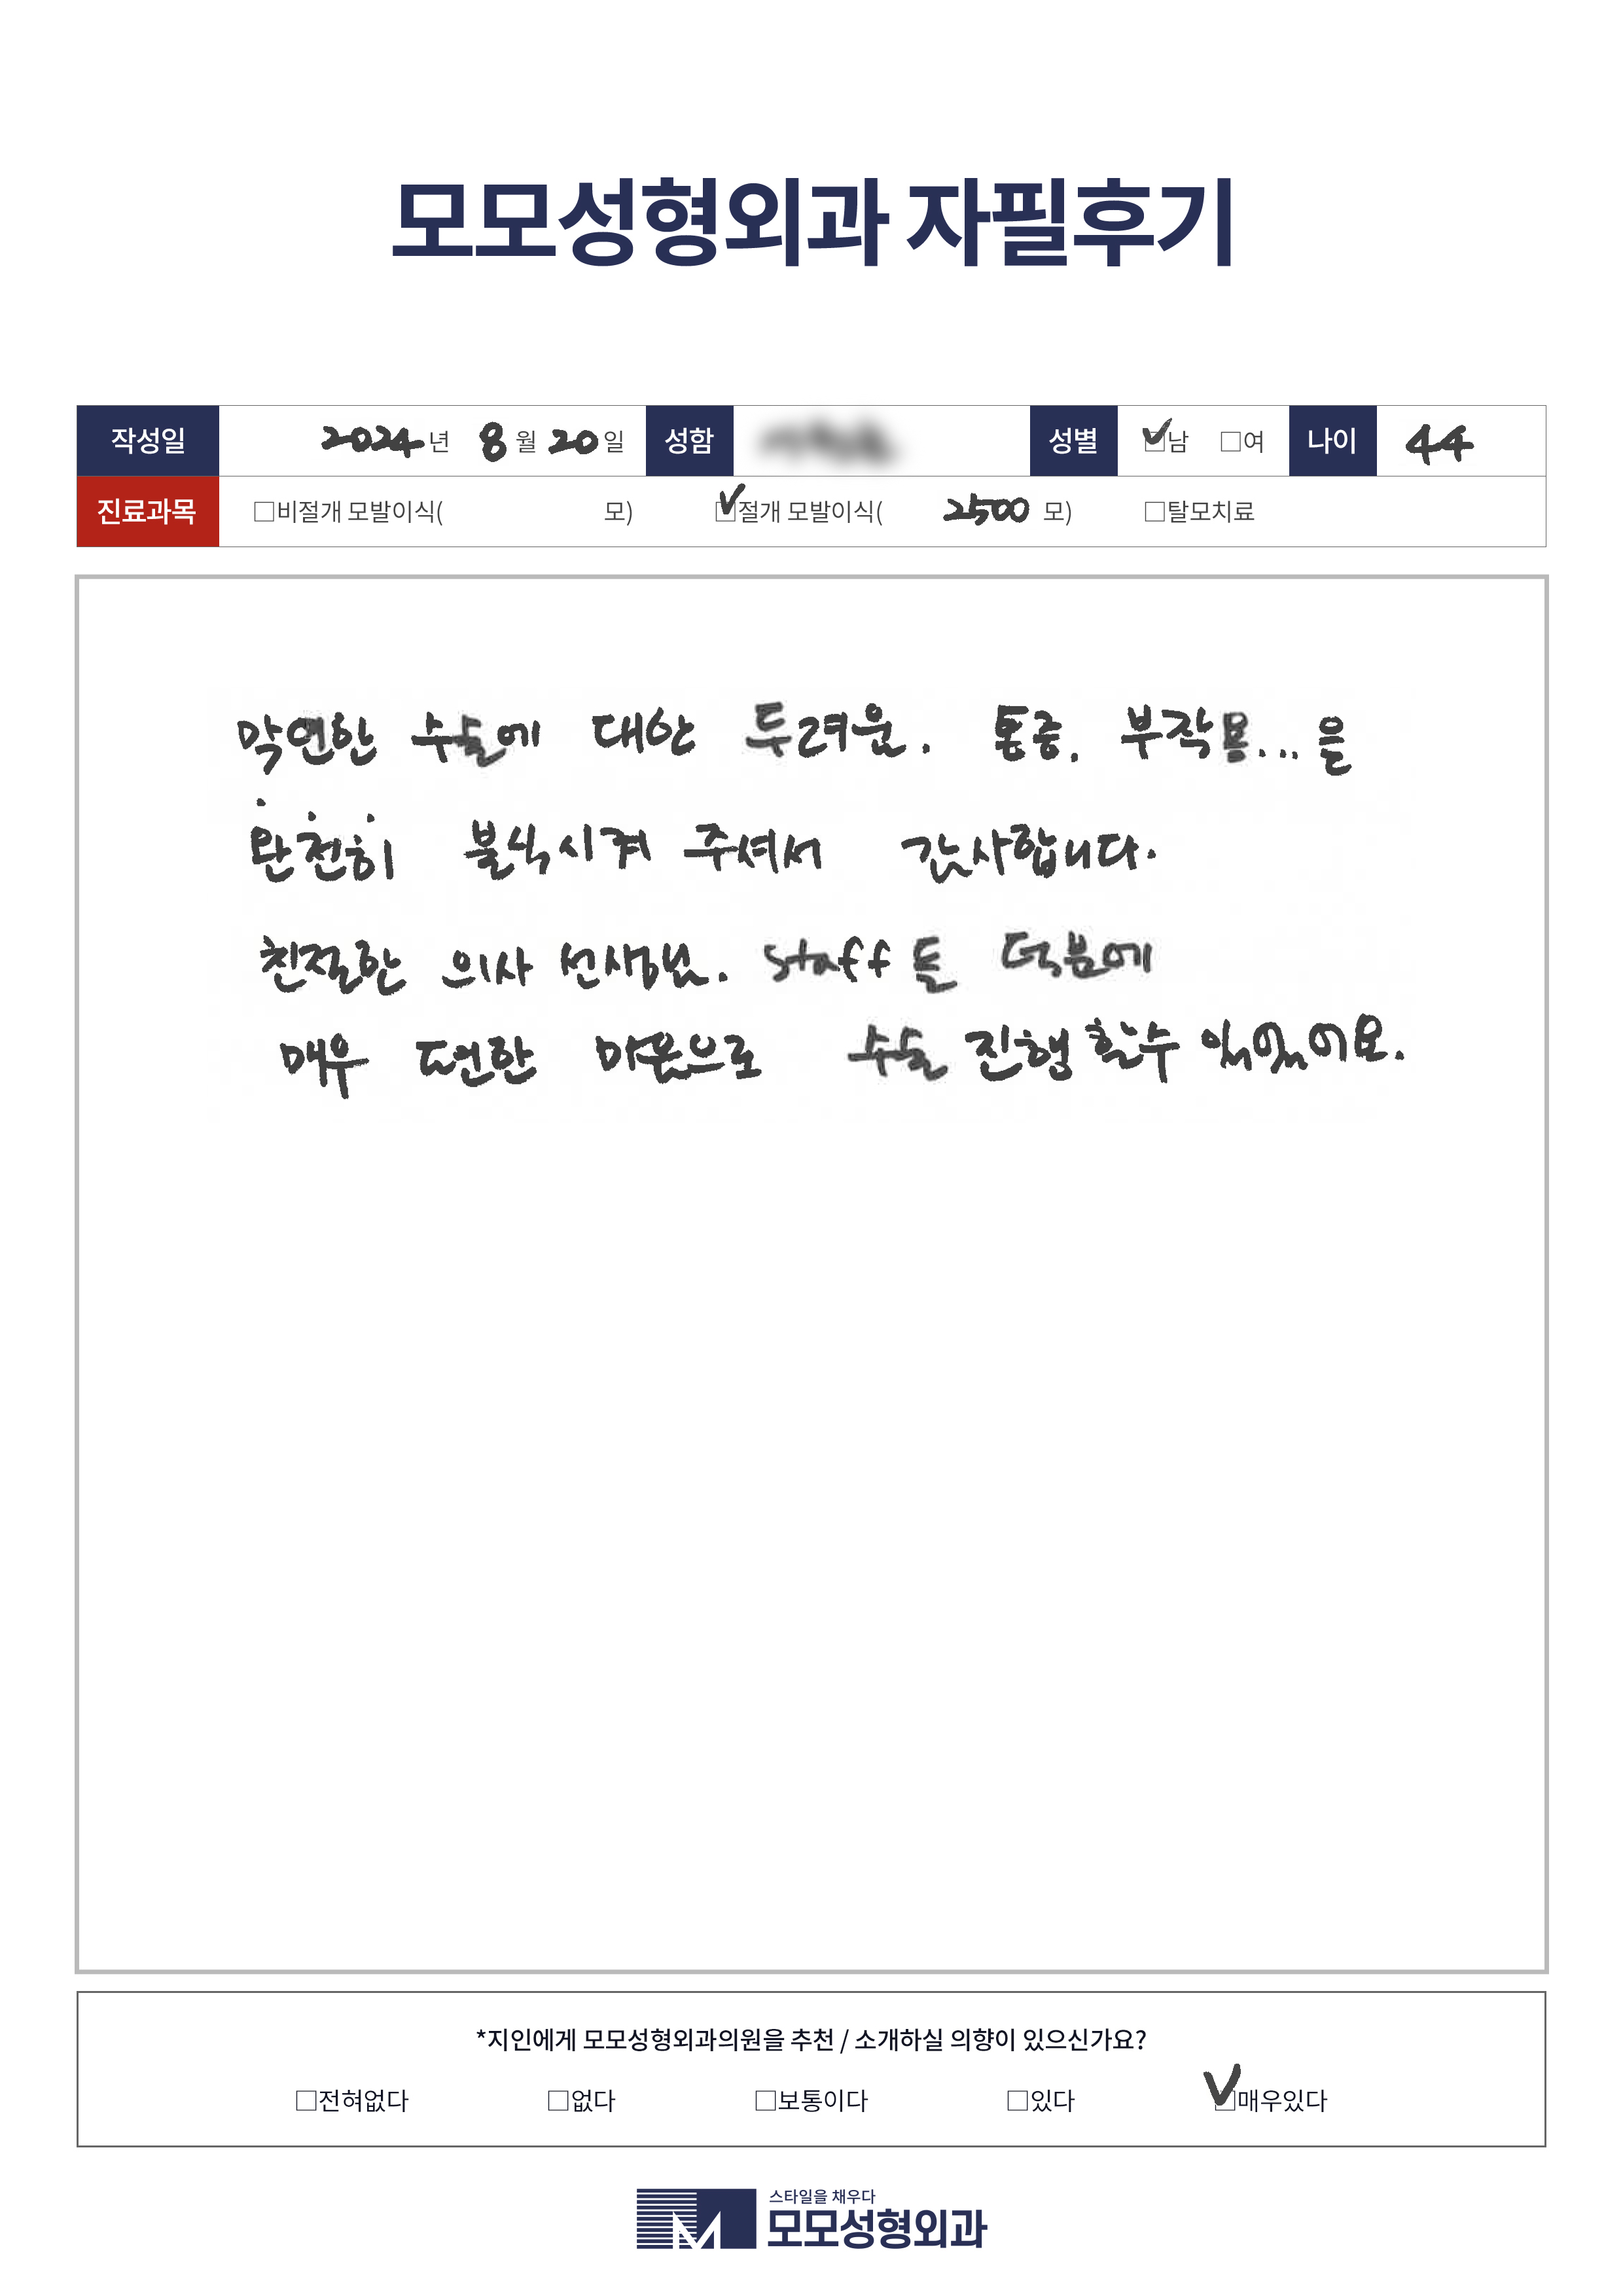 모모성형외과 자필후기
작성일 2024년 8월 20일 성함 성별 ☑남 □여 나이 44
진료과목 □비절개 모발이식( 모) ☑절개 모발이식( 2500 모) □탈모치료
막연한 수술에 대한 두려움. 통증. 부작용... 을
완전히 불식시켜 주셔서 감사합니다.
친절한 의사 선생님. staff 들 덕분에
매우 편한 마음으로 수술 진행할수 있었어요.
*지인에게 모모성형외과의원을 추천 / 소개하실 의향이 있으신가요?
□전혀없다 □없다 □보통이다 □있다 ☑매우있다
스타일을 채우다
모모성형외과